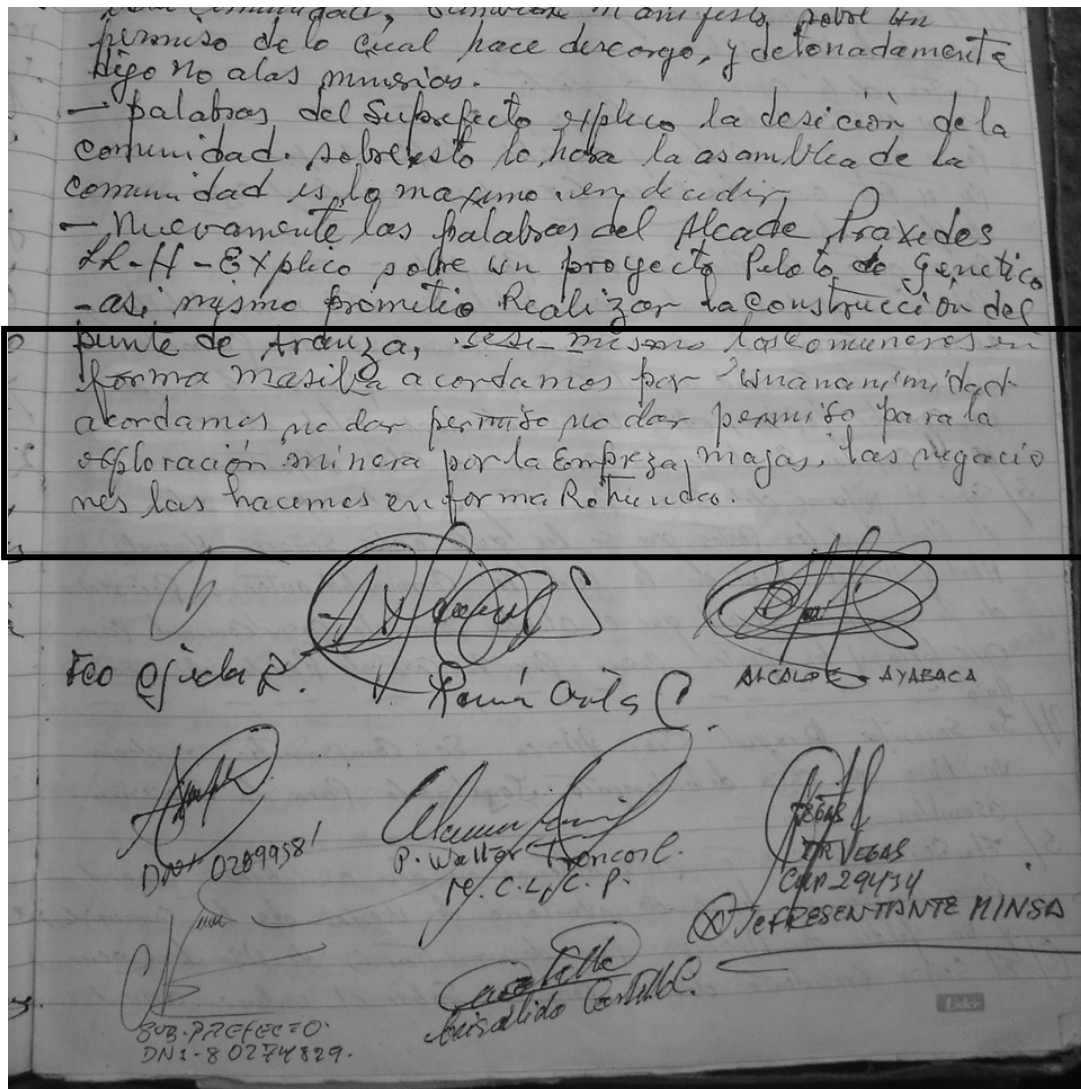 comunidad, manifesto, sobre un
permiso de lo cual hace descargo, y detonadamente
digo no alas minerias.
- palabras del Suprefecto explico la desición dela
comunidad. sobre esto lo hora la asamblea de la
comunidad es lo maximo en decidir,
- Nuevamente las palabras del Alcade Praxedes
LR-H-Explico sobre un proyecto Piloto de Genetico
- asi mismo prometio Realizar la construcción del
punte de Aranza, asi mismo los comuneros en
forma masiba acordamos por unananimidad
akordamos no dar permiso no dar permiso para la
exploración minera por la Empreza, majas, las negacio
nes las hacemos en forma Rotundao.
Feo Ojeda R.
Román Ortiz C.
ALCALDE AYABACA
DNI 02899581
P. Walter Troncos C.
M.C.L.C.P.
VEGAS
CMP 29434
REPRESENTANTE MINSA
SUB-PREFECTO.
DNI-80274829.
Crisalido Castillo C.
Lake